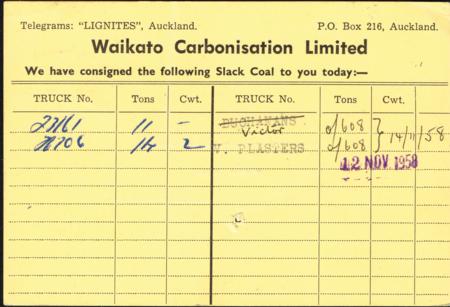 Telegrams: "LIGNITES", Auckland. P.O. Box 216, Auckland.
Waikato Carbonisation Limited
We have consigned the following Slack Coal to you today:—
TRUCK No. Tons Cwt. TRUCK No. Tons Cwt.
11 – BUCHANANS o/608
Victor
706 14 2 V. PLASTERS o/608 } 14/11/58
12 NOV 1958